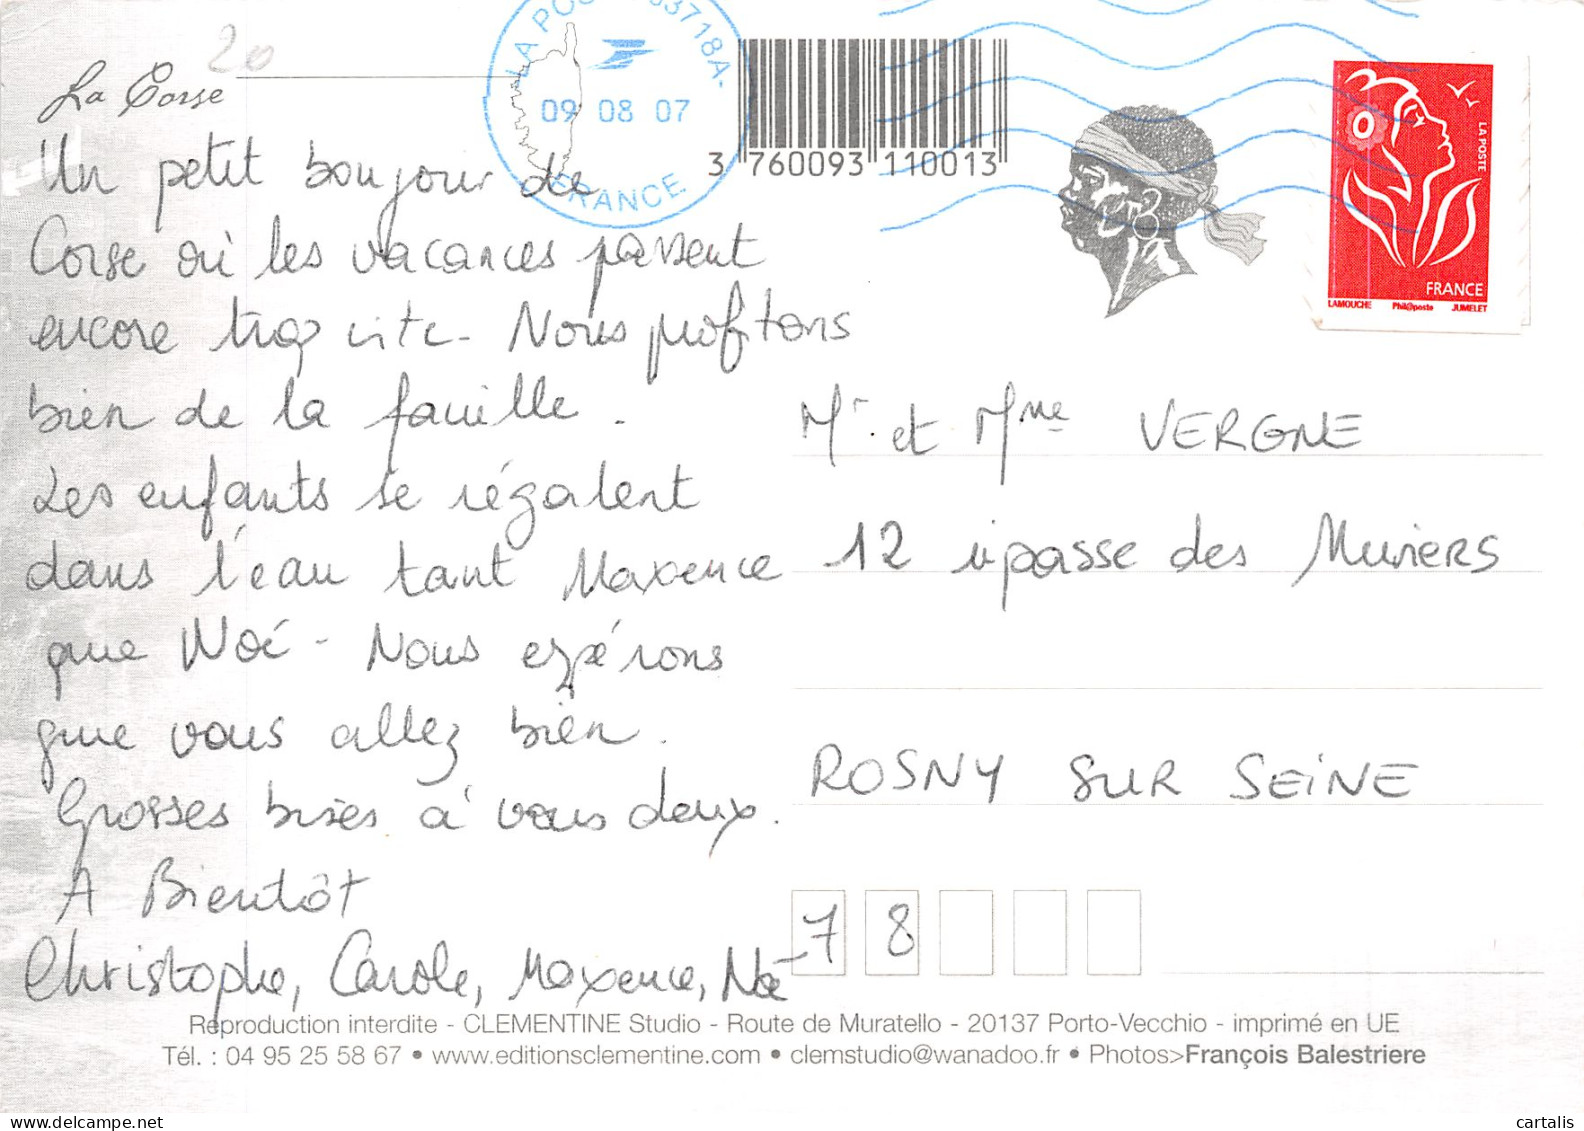 20
La Corse
LA POSTE 33718A-
09 08 07
FRANCE
3 760093 110013
LA POSTE
FRANCE
LAMOUCHE Phil@poste JUMELET
Un petit bonjour de
Corse où les vacances passent
encore trop vite - Nous profitons
bien de la famille.
Les enfants se régalent
dans l'eau tant Maxence
que Noé - Nous espérons
que vous allez bien.
Grosses bises à vous deux.
A Bientôt
Christophe, Carole, Maxence, Noé
Mr et Mme VERGNE
12 impasse des Muriers
ROSNY SUR SEINE
78
Reproduction interdite - CLEMENTINE Studio - Route de Muratello - 20137 Porto-Vecchio - imprimé en UE
Tél. : 04 95 25 58 67 • www.editionsclementine.com • clemstudio@wanadoo.fr • Photos>François Balestriere
cartalis